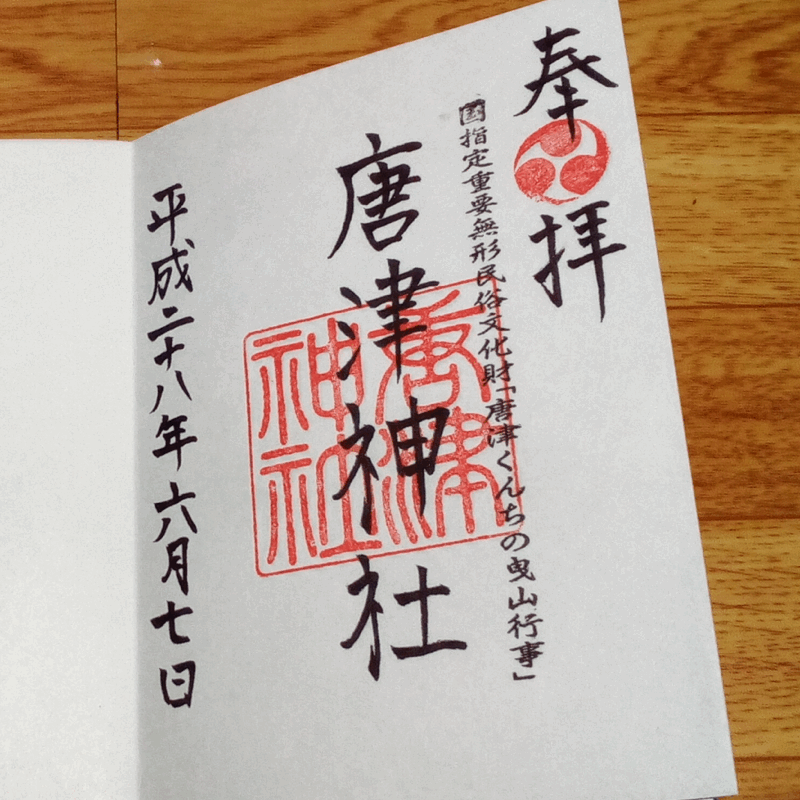 奉拝
国指定重要無形民俗文化財「唐津くんちの曳山行事」
唐津神社
唐津
神社
平成二十八年六月七日